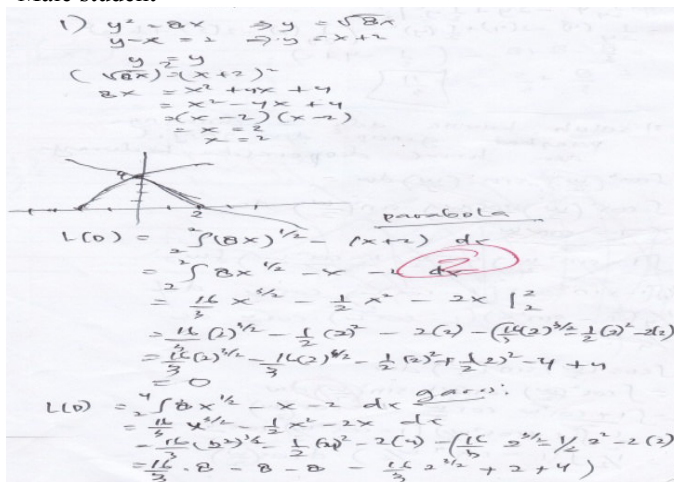 Male student
1) y² = 8x ⇒ y = √8x
y-x = 2 ⇒ y = x+2
y = y
(√8x)² = (x+2)²
8x = x² + 4x + 4
= x² - 4x + 4
= (x-2)(x-2)
= x = 2
x = 2
2
parabola
L(D) = ₂∫² (8x)^1/2 - (x+2) dx
= ₂∫² 8x^1/2 - x - dx
2
= 16/3 x^3/2 - 1/2 x² - 2x |₂²
= 16/3 (2)^3/2 - 1/2 (2)² - 2(2) - (16/3 (2)^3/2 - 1/2 (2)² - 2(2)
= 16/3 (2)^3/2 - 16/3 (2)^3/2 - 1/2 (2)² + 1/2 (2)² - 4 + 4
= 0
L(D) = ₂∫⁴ 8x^1/2 - x - 2 dx
= 16/3 x^3/2 - 1/2 x² - 2x
= 16/3 - 1/2 (4)² - 2(4) - (16/3 2^3/2 - 1/2 2² - 2(2)
= 16/3 . 8 - 8 - 8 - 16/3 2^3/2 + 2 + 4)